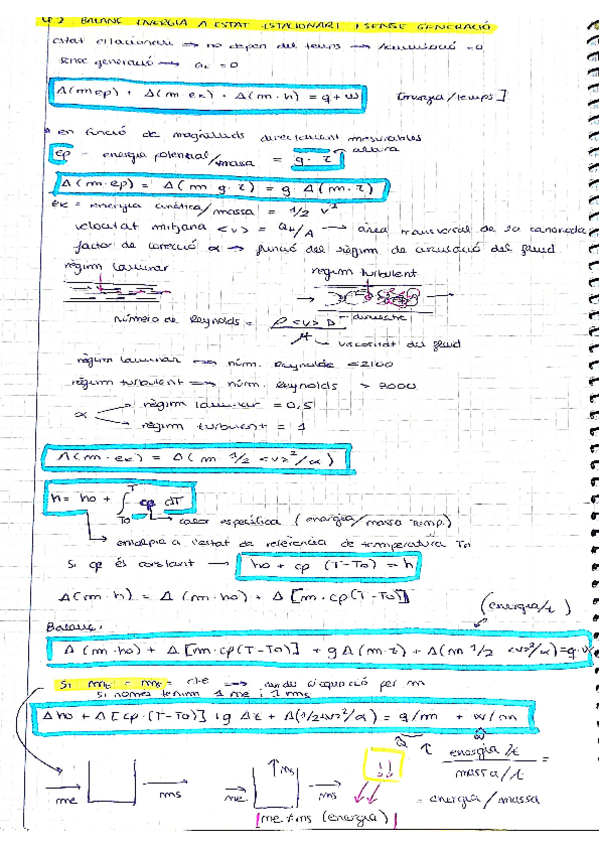 4.2 BALANÇ ENERGIA A ESTAT ESTACIONARI I SENSE GENERACIÓ
estat estacionari → no depen del temps → acumulació = 0
sense generació →
Δ(m·ep) + Δ(m·ek) + Δ(m·h) = q + w [energia/temps]
* en funció de magnituds directament mesurables
ep - energia potencial/massa = g · z → altura
Δ(m·ep) = Δ(m g·z) = g·Δ(m·z)
ek = energia cinètica/massa = 1/2 v²
velocitat mitjana <v> = Qv/A → àrea transversal de la canonada
factor de correcció α → funció del règim de circulació del fluid
règim laminar
règim turbulent
número de Reynolds = ρ<v>D/μ
diametre
viscositat del fluid
règim laminar → núm. Reynolds <2100
règim turbulent → núm. Reynolds >
α
règim laminar = 0,5
règim turbulent = 1
Δ(m·ek) = Δ(m 1/2 <v>²/α)
h = ho + ∫ To T cp dT
calor específica (energia/massa temp.)
entalpia a l'estat de referència de temperatura To
Si cp és constant → ho + cp (T-To) = h
Δ(m·h) = Δ(m·ho) + Δ[m·cp(T-To)]
(energia/t)
Balanç:
Δ(m·ho) + Δ[m·cp(T-To)] + gΔ(m·z) + Δ(m 1/2 <v>²/α) = q+w
Si me = ms = cte → equació per m
si només tenim 1 me i 1 ms
Δho + Δ[cp·(T-To)] + g Δz + Δ(1/2<v>²/α) = q/m + w/m
energia/t
massa/t
=
= energia/massa
me
ms
me
ms
ms
me ≠ ms (energia)